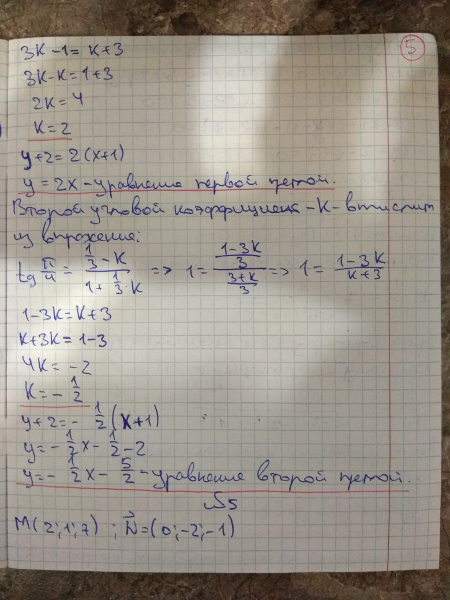 5
3K-1=K+3
3K-K=1+3
2K=4
K=2
y+2=2(x+1)
y=2x-уравнение первой прямой.
Второй угловой коэффициент -К- вычислим
из выражения:
tg π/4 = (1/3 - K)/(1 + 1/3 · K) => 1 = ((1-3K)/3)/((3+K)/3) => 1 = (1-3K)/(K+3)
1-3K=K+3
K+3K=1-3
4K=-2
K=-1/2
y+2=-1/2(x+1)
y=-1/2x-1/2-2
y=-1/2x-5/2-уравнение второй прямой.
№5
M(2;1;7) ; N⃗=(0;-2;-1)